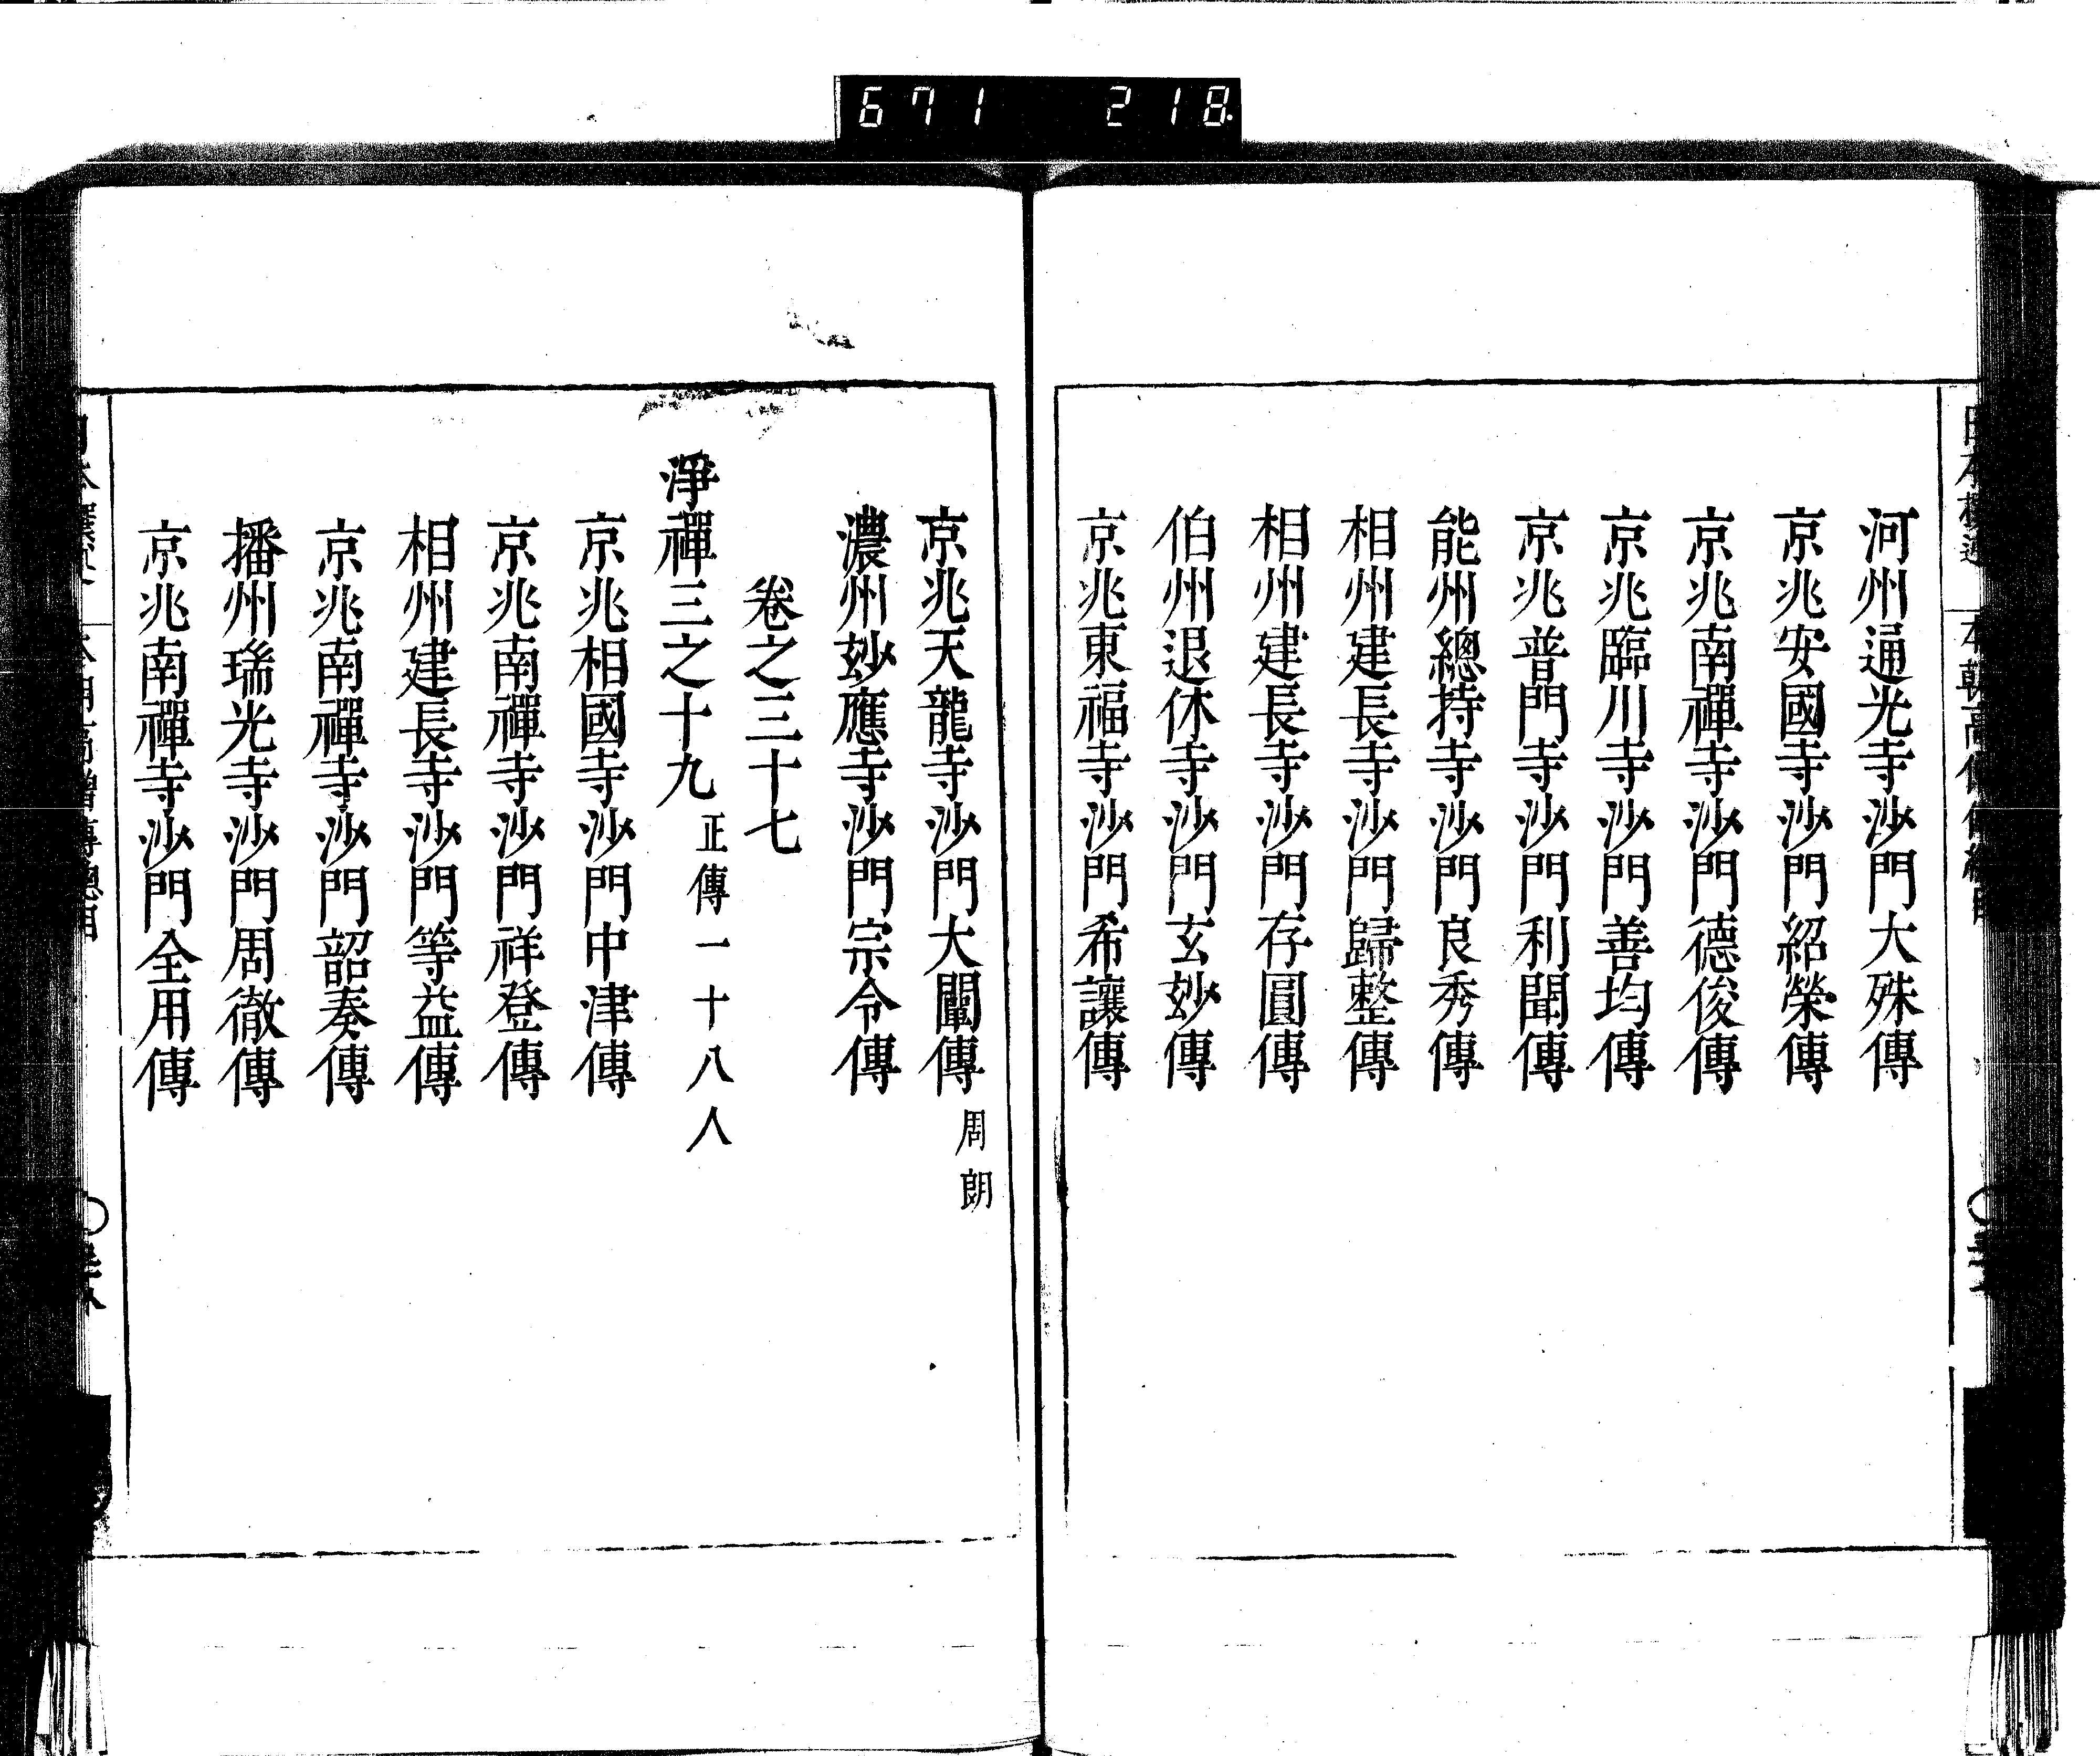 671 218
河州通光寺沙門大殊傳
京兆安國寺沙門紹榮傳
京兆南禪寺沙門德俊傳
京兆臨川寺沙門善均傳
京兆普門寺沙門利聞傳
能州總持寺沙門良秀傳
相州建長寺沙門歸整傳
相州建長寺沙門存圓傳
伯州退休寺沙門玄妙傳
京兆東福寺沙門希讓傳
京兆天龍寺沙門大闡傳 周朗
濃州妙應寺沙門宗令傳
卷之三十七
淨禪三之十九 正傳一十八人
京兆相國寺沙門中津傳
京兆南禪寺沙門祥登傳
相州建長寺沙門等益傳
京兆南禪寺沙門韶奏傳
播州瑞光寺沙門周徹傳
京兆南禪寺沙門全用傳